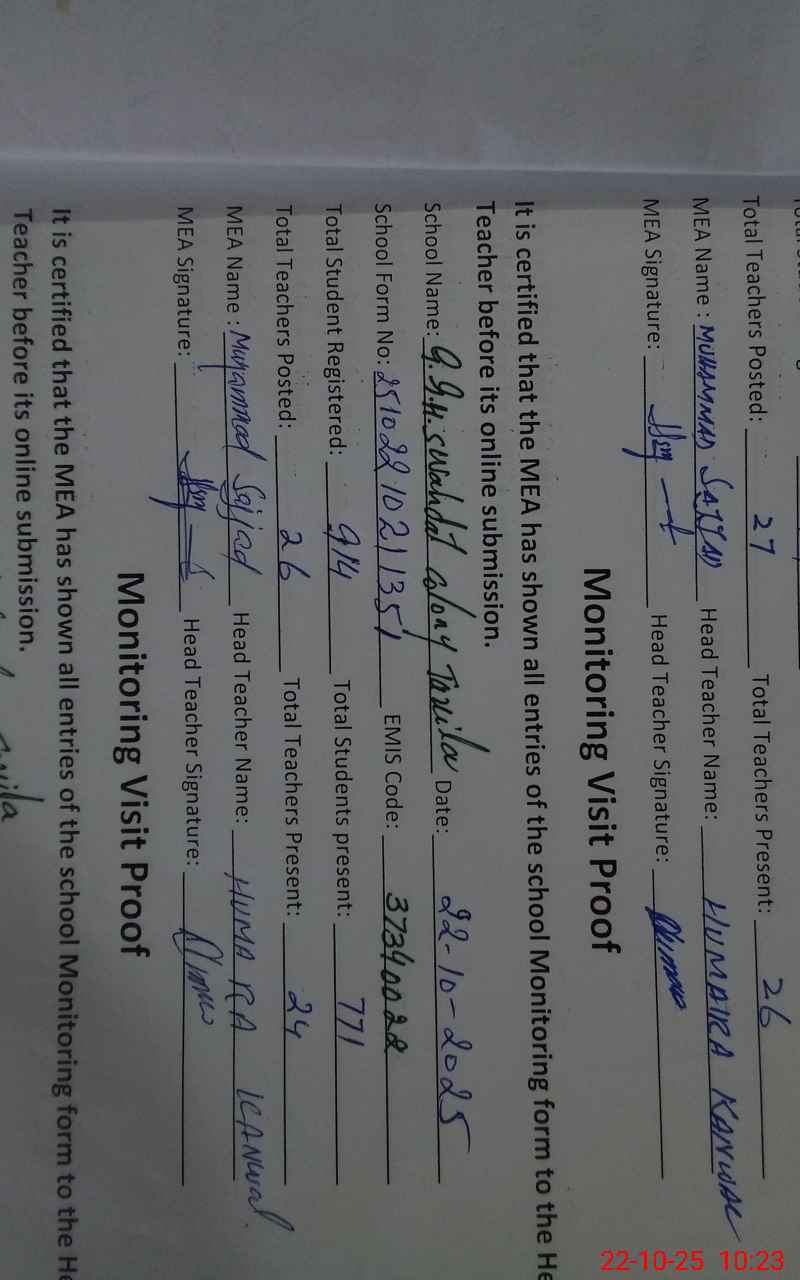 Total Teachers Posted: 27 Total Teachers Present: 26
MEA Name : MUHAMMAD SAJJAD Head Teacher Name: HUMAIRA KANWAL
MEA Signature: Head Teacher Signature:
Monitoring Visit Proof
It is certified that the MEA has shown all entries of the school Monitoring form to the He
Teacher before its online submission.
School Name: G.G.H.S Wahdat colony Taxila Date: 22-10-2025
School Form No: 25102210211351 EMIS Code: 37340022
Total Student Registered: 914 Total Students present: 771
Total Teachers Posted: 26 Total Teachers Present: 24
MEA Name : Muhammad Sajjad Head Teacher Name: HUMAIRA KANWAL
MEA Signature: Head Teacher Signature:
Monitoring Visit Proof
It is certified that the MEA has shown all entries of the school Monitoring form to the He
Teacher before its online submission.
22-10-25 10:23